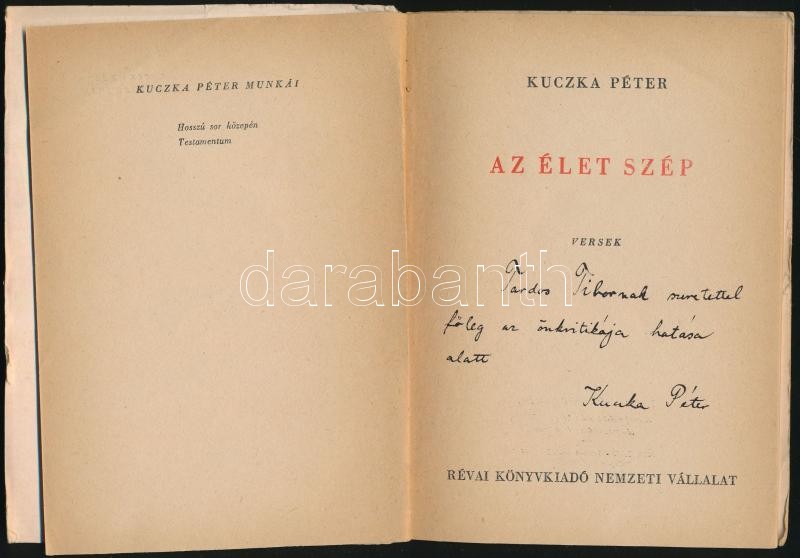 KUCZKA PÉTER MUNKÁI
Hosszú sor közepén
Testamentum
KUCZKA PÉTER
AZ ÉLET SZÉP
VERSEK
Tardos Tibornak szeretettel
főleg az önkritikája hatása
alatt
Kuczka Péter
RÉVAI KÖNYVKIADÓ NEMZETI VÁLLALAT
darabanth